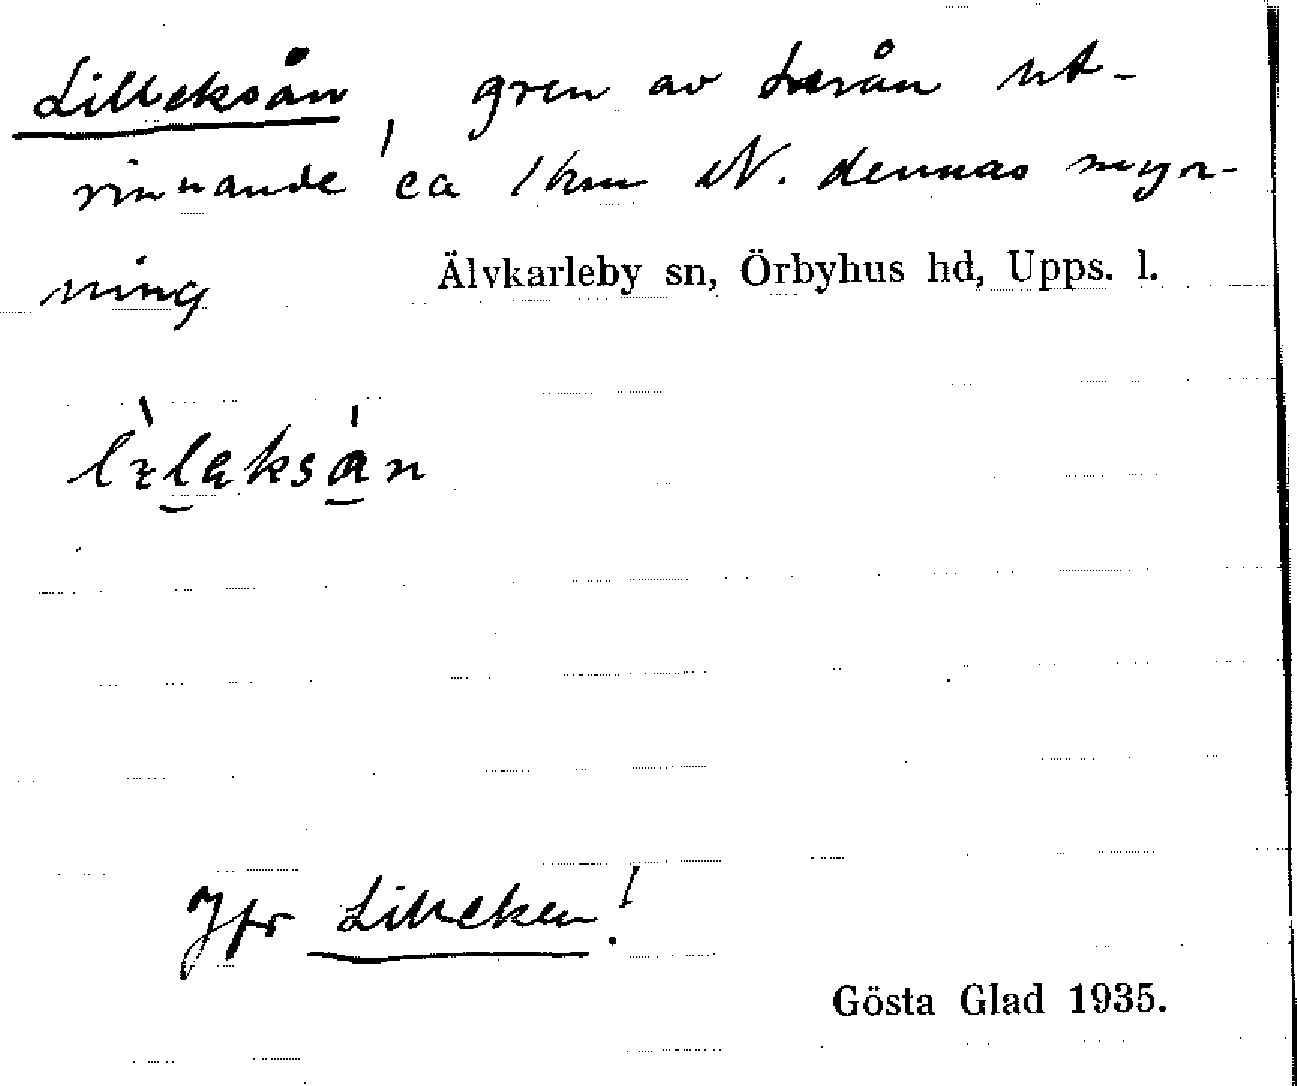 Lilleksån, gren av Lurån ut-
rinnande ca 1 km N. dennas myn-
ning Älvkarleby sn, Örbyhus hd, Upps. l.
Jfr Lilleken!
Gösta Glad 1935.